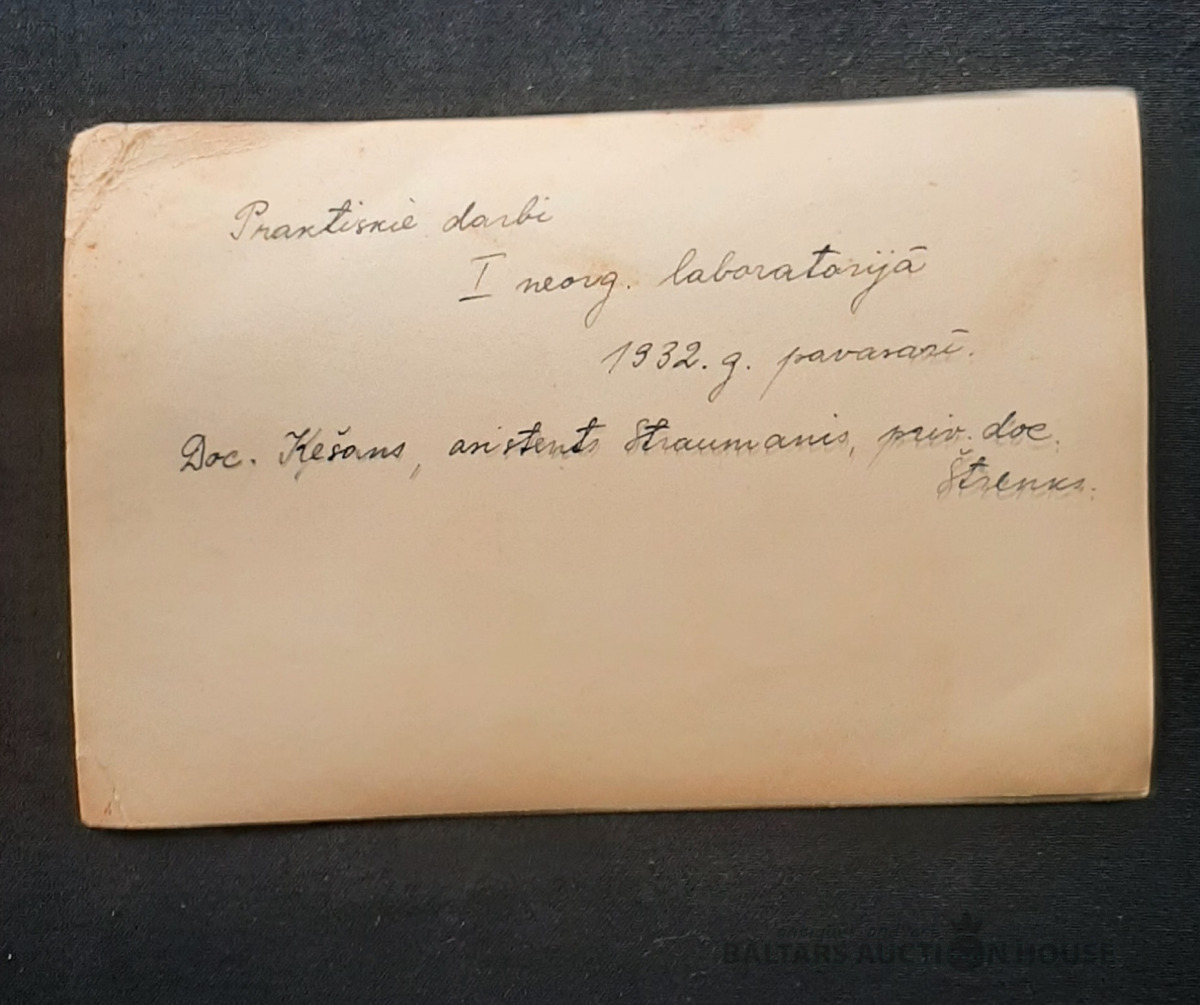 Praktiskie darbi
I neorg. laboratorijā
1932. g. pavasarī.
Doc. Ķešans, asistents Straumanis, priv. doc.
Štrenks.
BALTARS AUCTION HOUSE